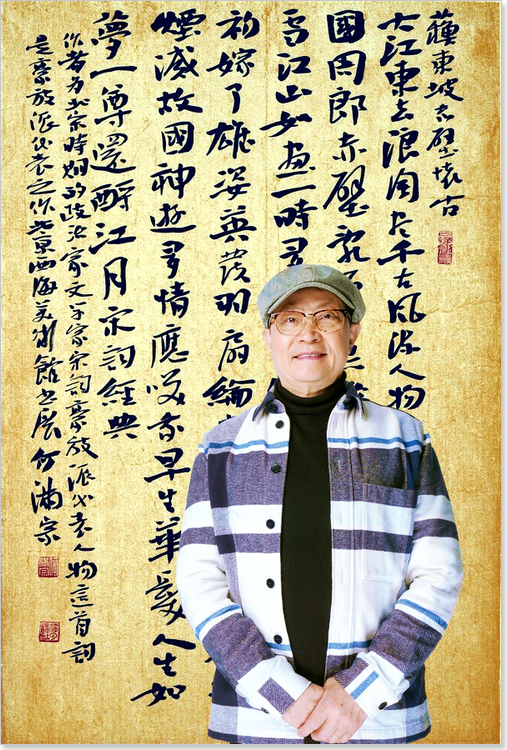 蘓東坡赤壁懷古
大江東去浪淘尽千古風流人物
國周郎赤壁乱
雪江山如畫一時多
初嫁了雄姿英發羽扇綸
煙滅故國神遊多情應笑我早生華髮人生如
夢一尊還酹江月宋詞經典
作者为北宋時期的政治家文学家宋詞豪放派代表人物這首詞
是豪放派代表之作北京西海美術館出展何满宗